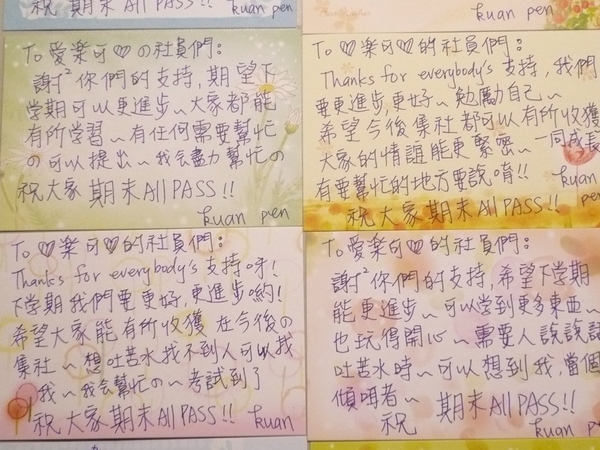 祝 大家 期末 All PASS!!
kuan pen
kuan pen
To 愛樂可♡の社員們:
謝²你們的支持,期望下
学期可以更進步~大家都能
有所学習~有任何需要幫忙
の可以提出~我会盡力幫忙の
祝大家 期末 All PASS!!
kuan pen
To ♡樂可♡的社員們:
Thanks for everybody's 支持,我們
要更進步,更好~勉勵自己~
希望今後集社都可以有所收獲
大家的情誼能更緊密~一同成長
有要幫忙的地方要說唷!!
kuan pen
祝大家期末All PASS!!
To ♡樂可♡的社員們:
Thanks for everybody's 支持呀!
下学期我們要更好,更進步喲!
希望大家能有所收獲 在今後の
集社~想吐苦水找不到人可以找
我~我会幫忙の~考試到了
祝大家期末All PASS!!
kuan
To 愛樂可♡的社員們:
謝²你們的支持,希望下学期
能更進步~可以学到更多東西~
也玩得開心~需要人說說話
吐苦水時~可以想到我,當個
傾聽者~
祝 期末All PASS!!
kuan pen